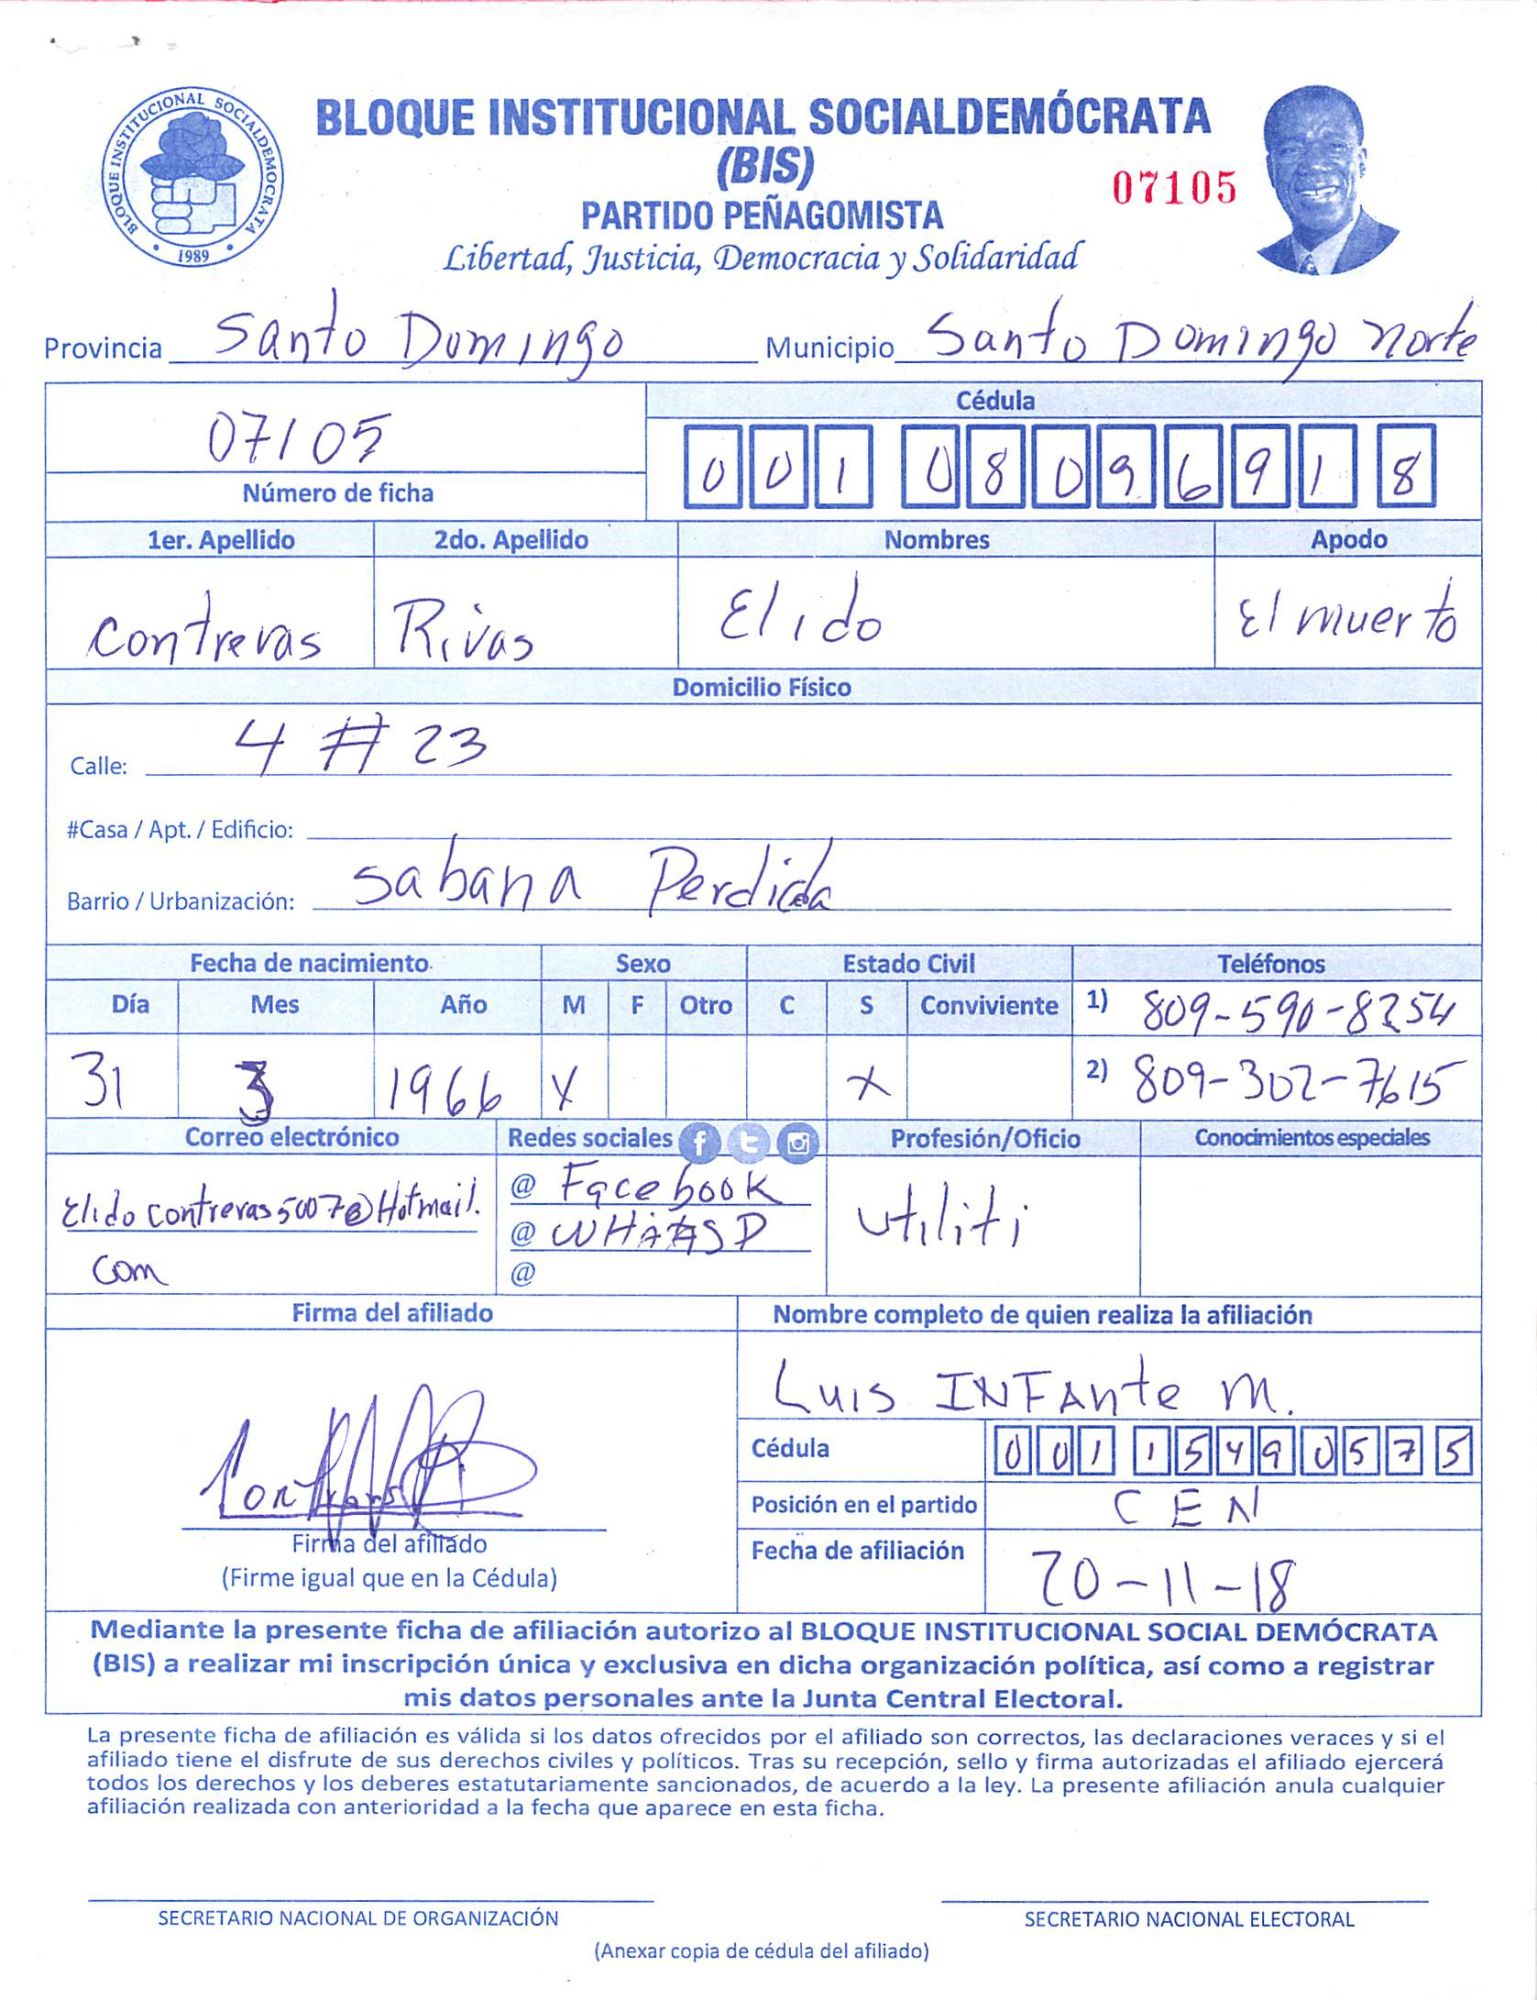 BLOQUE INSTITUCIONAL SOCIALDEMOCRATA
1989
BLOQUE INSTITUCIONAL SOCIALDEMÓCRATA
(BIS)
07105
PARTIDO PEÑAGOMISTA
Libertad, Justicia, Democracia y Solidaridad
Provincia Santo Domingo Municipio Santo Domingo norte
07105
Número de ficha
Cédula
0 0 1 0 8 0 9 6 9 1 8
1er. Apellido 2do. Apellido Nombres Apodo
Contreras Rivas Elido El muerto
Domicilio Físico
Calle: 4 # 23
#Casa / Apt. / Edificio:
Barrio / Urbanización: Sabana Perdida
Fecha de nacimiento Sexo Estado Civil Teléfonos
Día Mes Año M F Otro C S Conviviente 1) 809-590-8254
31 3 1966 X X 2) 809-302-7615
Correo electrónico Redes sociales Profesión/Oficio Conocimientos especiales
Elido contreras5007@Hotmail.
com
@ Facebook
@
@
utiliti
Firma del afiliado Nombre completo de quien realiza la afiliación
Luis INFAnte M.
Cédula 0 0 1 1 5 4 9 0 5 7 5
Posición en el partido CEN
Fecha de afiliación 20-11-18
Firma del afiliado
(Firme igual que en la Cédula)
Mediante la presente ficha de afiliación autorizo al BLOQUE INSTITUCIONAL SOCIAL DEMÓCRATA
(BIS) a realizar mi inscripción única y exclusiva en dicha organización política, así como a registrar
mis datos personales ante la Junta Central Electoral.
La presente ficha de afiliación es válida si los datos ofrecidos por el afiliado son correctos, las declaraciones veraces y si el
afiliado tiene el disfrute de sus derechos civiles y políticos. Tras su recepción, sello y firma autorizadas el afiliado ejercerá
todos los derechos y los deberes estatutariamente sancionados, de acuerdo a la ley. La presente afiliación anula cualquier
afiliación realizada con anterioridad a la fecha que aparece en esta ficha.
SECRETARIO NACIONAL DE ORGANIZACIÓN SECRETARIO NACIONAL ELECTORAL
(Anexar copia de cédula del afiliado)